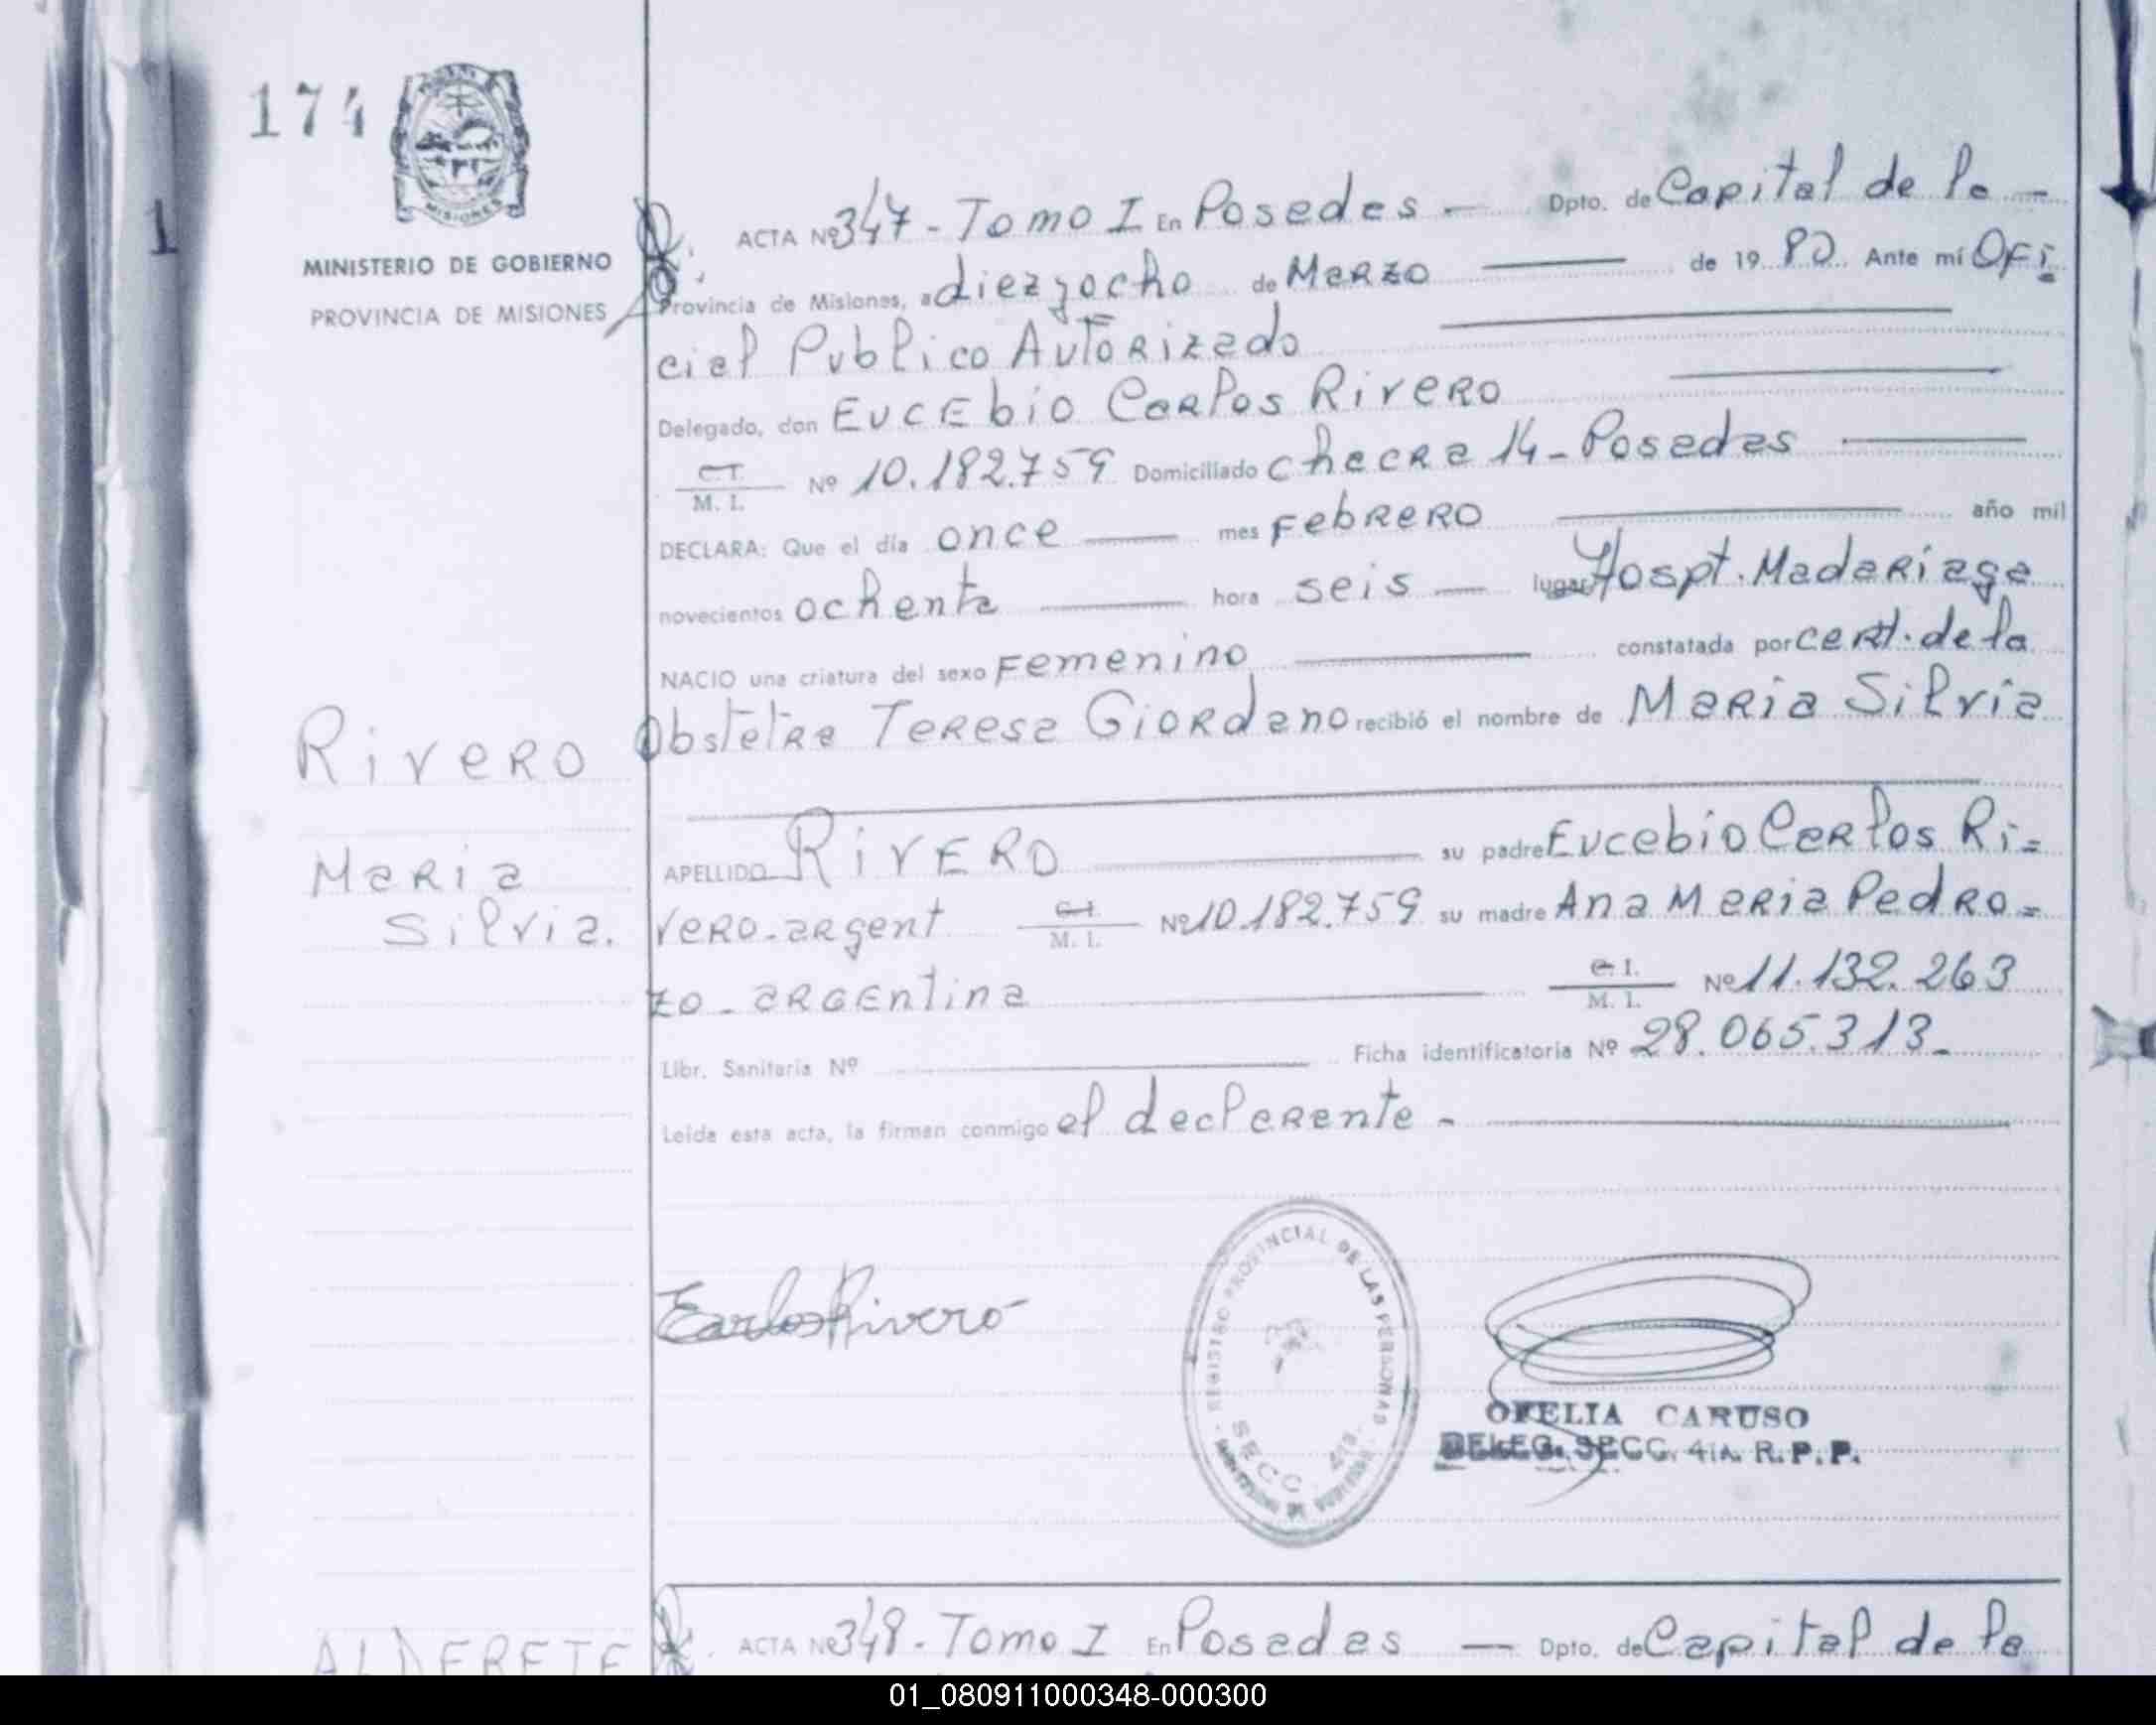 174
MISIONES
1
MINISTERIO DE GOBIERNO
PROVINCIA DE MISIONES
ACTA Nº 347 - Tomo I En Posadas — Dpto. de Capital de la —
Provincia de Misiones, a diezyocho de Marzo — de 19 80 Ante mí Ofi
cial Publico Autorizado
Delegado, don Eucebio Carlos Rivero
C.I. / M. I. Nº 10.182.759 Domiciliado chacra 14 - Posadas
DECLARA: Que el día once — mes Febrero — año mil
novecientos ochenta — hora seis — lugar Hospt. Madariaga
NACIO una criatura del sexo Femenino — constatada por cert. de la
Obstetra Teresa Giordano recibió el nombre de Maria Silvia
Rivero
APELLIDO RIVERO — su padre Eucebio Carlos Ri=
Maria
Silvia.
vero - argent C.I. / M. I. Nº 10.182.759 su madre Ana Maria Pedro=
zo - argentina — C.I. / M. I. Nº 11.132.263
Libr. Sanitaria Nº — Ficha identificatoria Nº 28.065.313-
Leída esta acta, la firman conmigo el declarante -
Carlos Rivero
REGISTRO PROVINCIAL DE LAS PERSONAS
SECC. 4ta.
OFELIA CARUSO
DELEG. SECC. 4ta. R.P.P.
ALDERETE
ACTA Nº 348 - Tomo I En Posadas — Dpto. de Capital de la
01_080911000348-000300